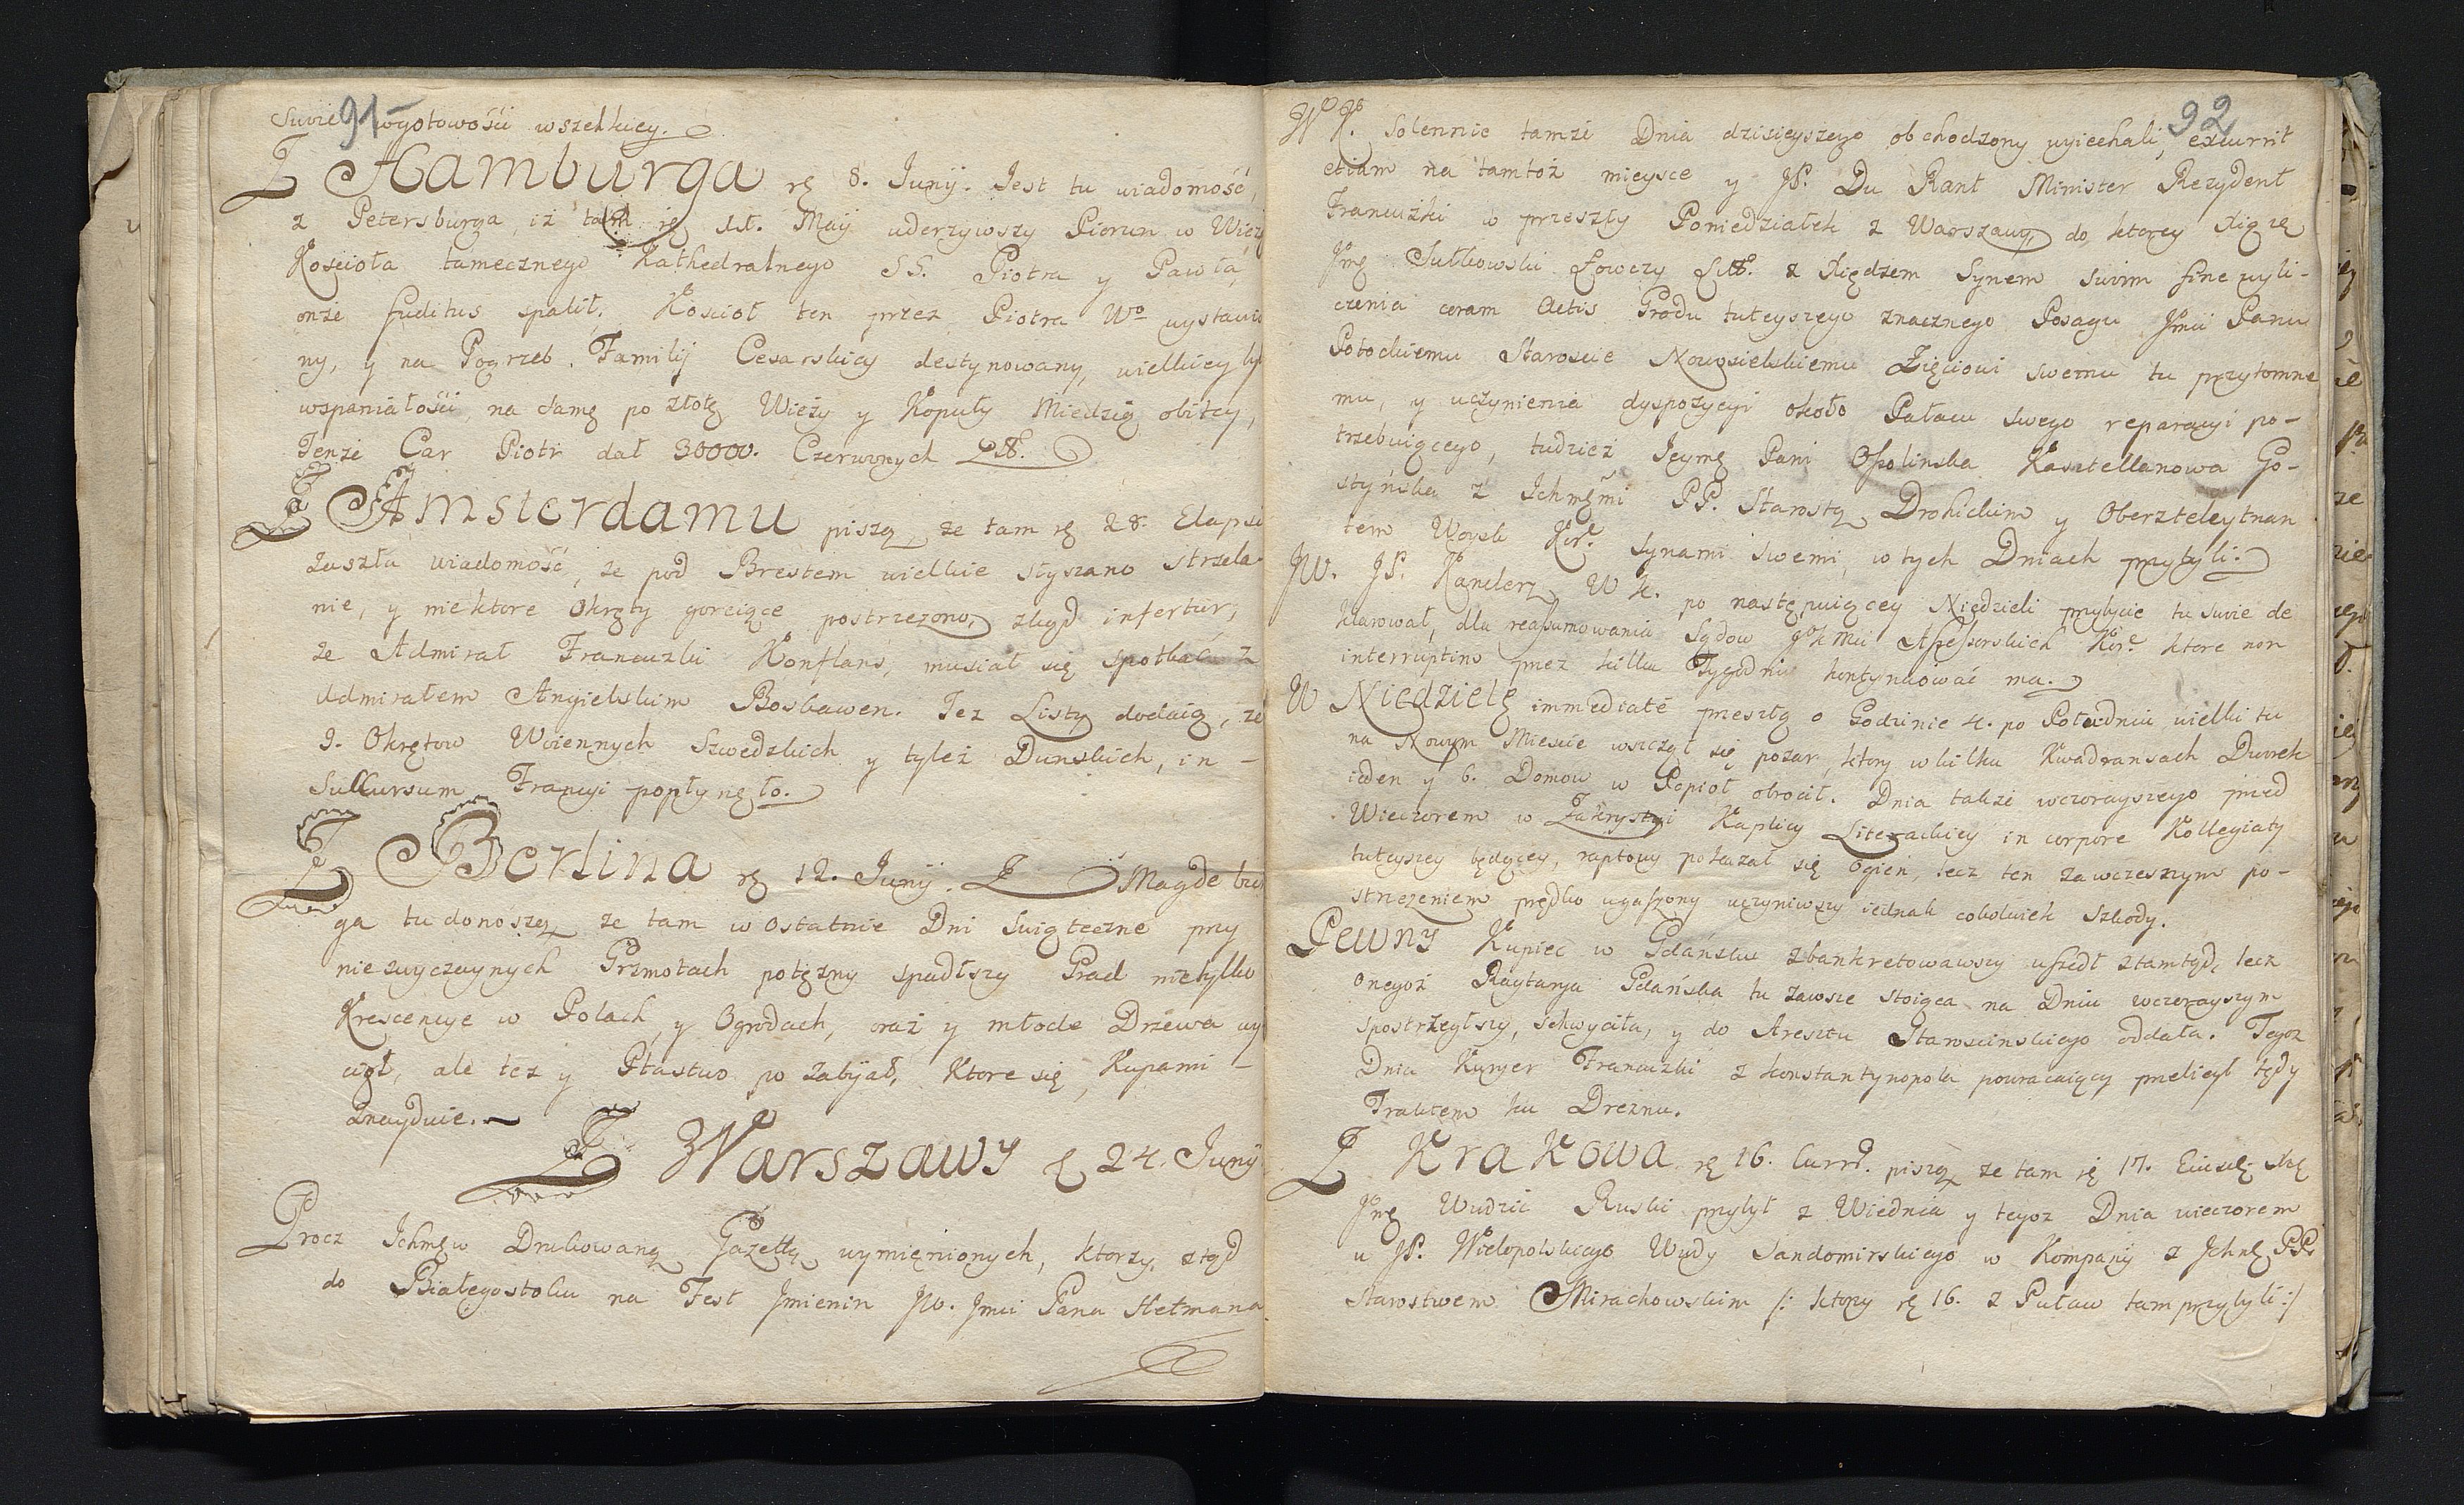 91
swie w gotowości wszelkiey.
Z Hamburga rę 8. Junij. Jest tu wiadomość,
z Petersburga, iż tam rę 11. Maij uderzywszy Piorun w Wieżę
Kościoła tamecznego Kathedralnego SS. Piotra y Pawła,
onże funditus spalił. Koscioł ten przez Piotra Wo wystawio
ny, y na Pogrzeb Familij Cesarskiey destynowany, wielkiey był
wspaniałości, na samę po złotę Wieży y Kopuły Miedzią obitey,
Tenże Car Piotr dał 30000. Czerwonych
Z Amsterdamu piszą, że tam rę 28. Elapsi
zaszła wiadomość, że pod Brestem wielkie słyszano strzela-
nie, y niektore Okręty goreiące postrzezono, zkąd infertur,
że Admirał Francuzki Konflans, musiał się spotkać z
Admirałem Angielskim Boskawen. Też Listy dodaią, że
9. Okrętow Woiennych Szwedzkich y tyleż Dunskich, in-
Sukkursum Francyi popłynęło.
Z Berlina rę 12. Junij. Z Magdebur
ga tu donoszą że tam w ostatnie Dni Swiąteczne przy
niezwyczaynych Grzmotach potężny spadłszy Grad nietylko
Krescencye w Polach, y Ogrodach, oraż y młode Drzewa wy
ciął, ale też y Ptastwo po zabijał, Ktore się Kupami-
znayduie.
Z Warszawy 24. Junij
Procz Ichmęw Drukowaną Gazettą wymienionych, ktorzy ztąd
do Białegostoku na Fest Jmienin JW. Jmci Pana Hetmana
92
W K. solennie tamże Dnia dzisieyszego obchodzony wyiechali, excurrit
etiam na tamtoż mieysce y JP. Du Rant Minister Rezydent
Francuzki w przeszły Poniedziałek z Warszawy, do ktorey Xiąże
Jmę Sułkowski Łowczy Litt. z Xiędzem Synem swoim fine wyli-
czenia coram Actis Grodu tuteyszego znacznego Posagu Jmci Panu
Potockiemu Staroscie Nowosielskiemu Zięciowi swemu tu przytomne
mu, y uczynienia dyspozycyi około Pałacu swego reparacyi po-
trzebuiącego, tudzież Jeymę Pani Ossolinska Kasztellanowa Go-
styńska z Ichmęmi PP. Starostą Drohickim y Oberszteleytnan
tem Woysk Kor. synami swemi, w tych Dniach przybyli.
JW. JP. Kanclerz W K. po następuiącey Niedzieli przybycie tu swoie de
klarował, dla reassumowania Sądow JKMci Assessorskich Kor. ktore non
interruptim przez kilka Tygodni kontynuować ma.
W Niedzielę immediatè przeszłą o Godzinie 4. po Południu wielki tu
na Nowym Miescie wszczął się pożar, ktory w kilku Kwadransach Dworek
ieden y 6. Domow w Popioł obrocił. Dnia także wczorayszego przed
Wieczorem w Zakrystyi Kaplicy Literackiey in corpore Kollegiaty
tuteyszey będącey, raptowy pokazał się Ogień, lecz ten zawczesnym po-
strzezeniem prędko ugaszony uczyniwszy iednak cokolwiek Szkody.
Pewny Kupiec w Gdańsku zbankretowawszy uszedł ztamtąd, lecz
onegoż Raytarya Gdańska tu zawsze stoiąca na Dniu wczorayszym
spostrzegłszy, schwyciła, y do Aresztu Staroscinskiego oddała. Tegoż
Dnia Kuryer Francuzki z Konstantynopola powracaiący przebiegł tędy
Traktem ku Dreznu.
Z Krakowa rę 16. Curr. piszą że tam rę 17. Xżę
Jmę Wudzic Ruski przybył z Wiednia y tegoż Dnia wieczorem
u JP. Wielopolskiego Wwdy Sandomirskiego w Kompanij z Ichmę PP.
Starostwem Mirachowskim /: ktorzy rę 16. z Puław tam przybyli :/